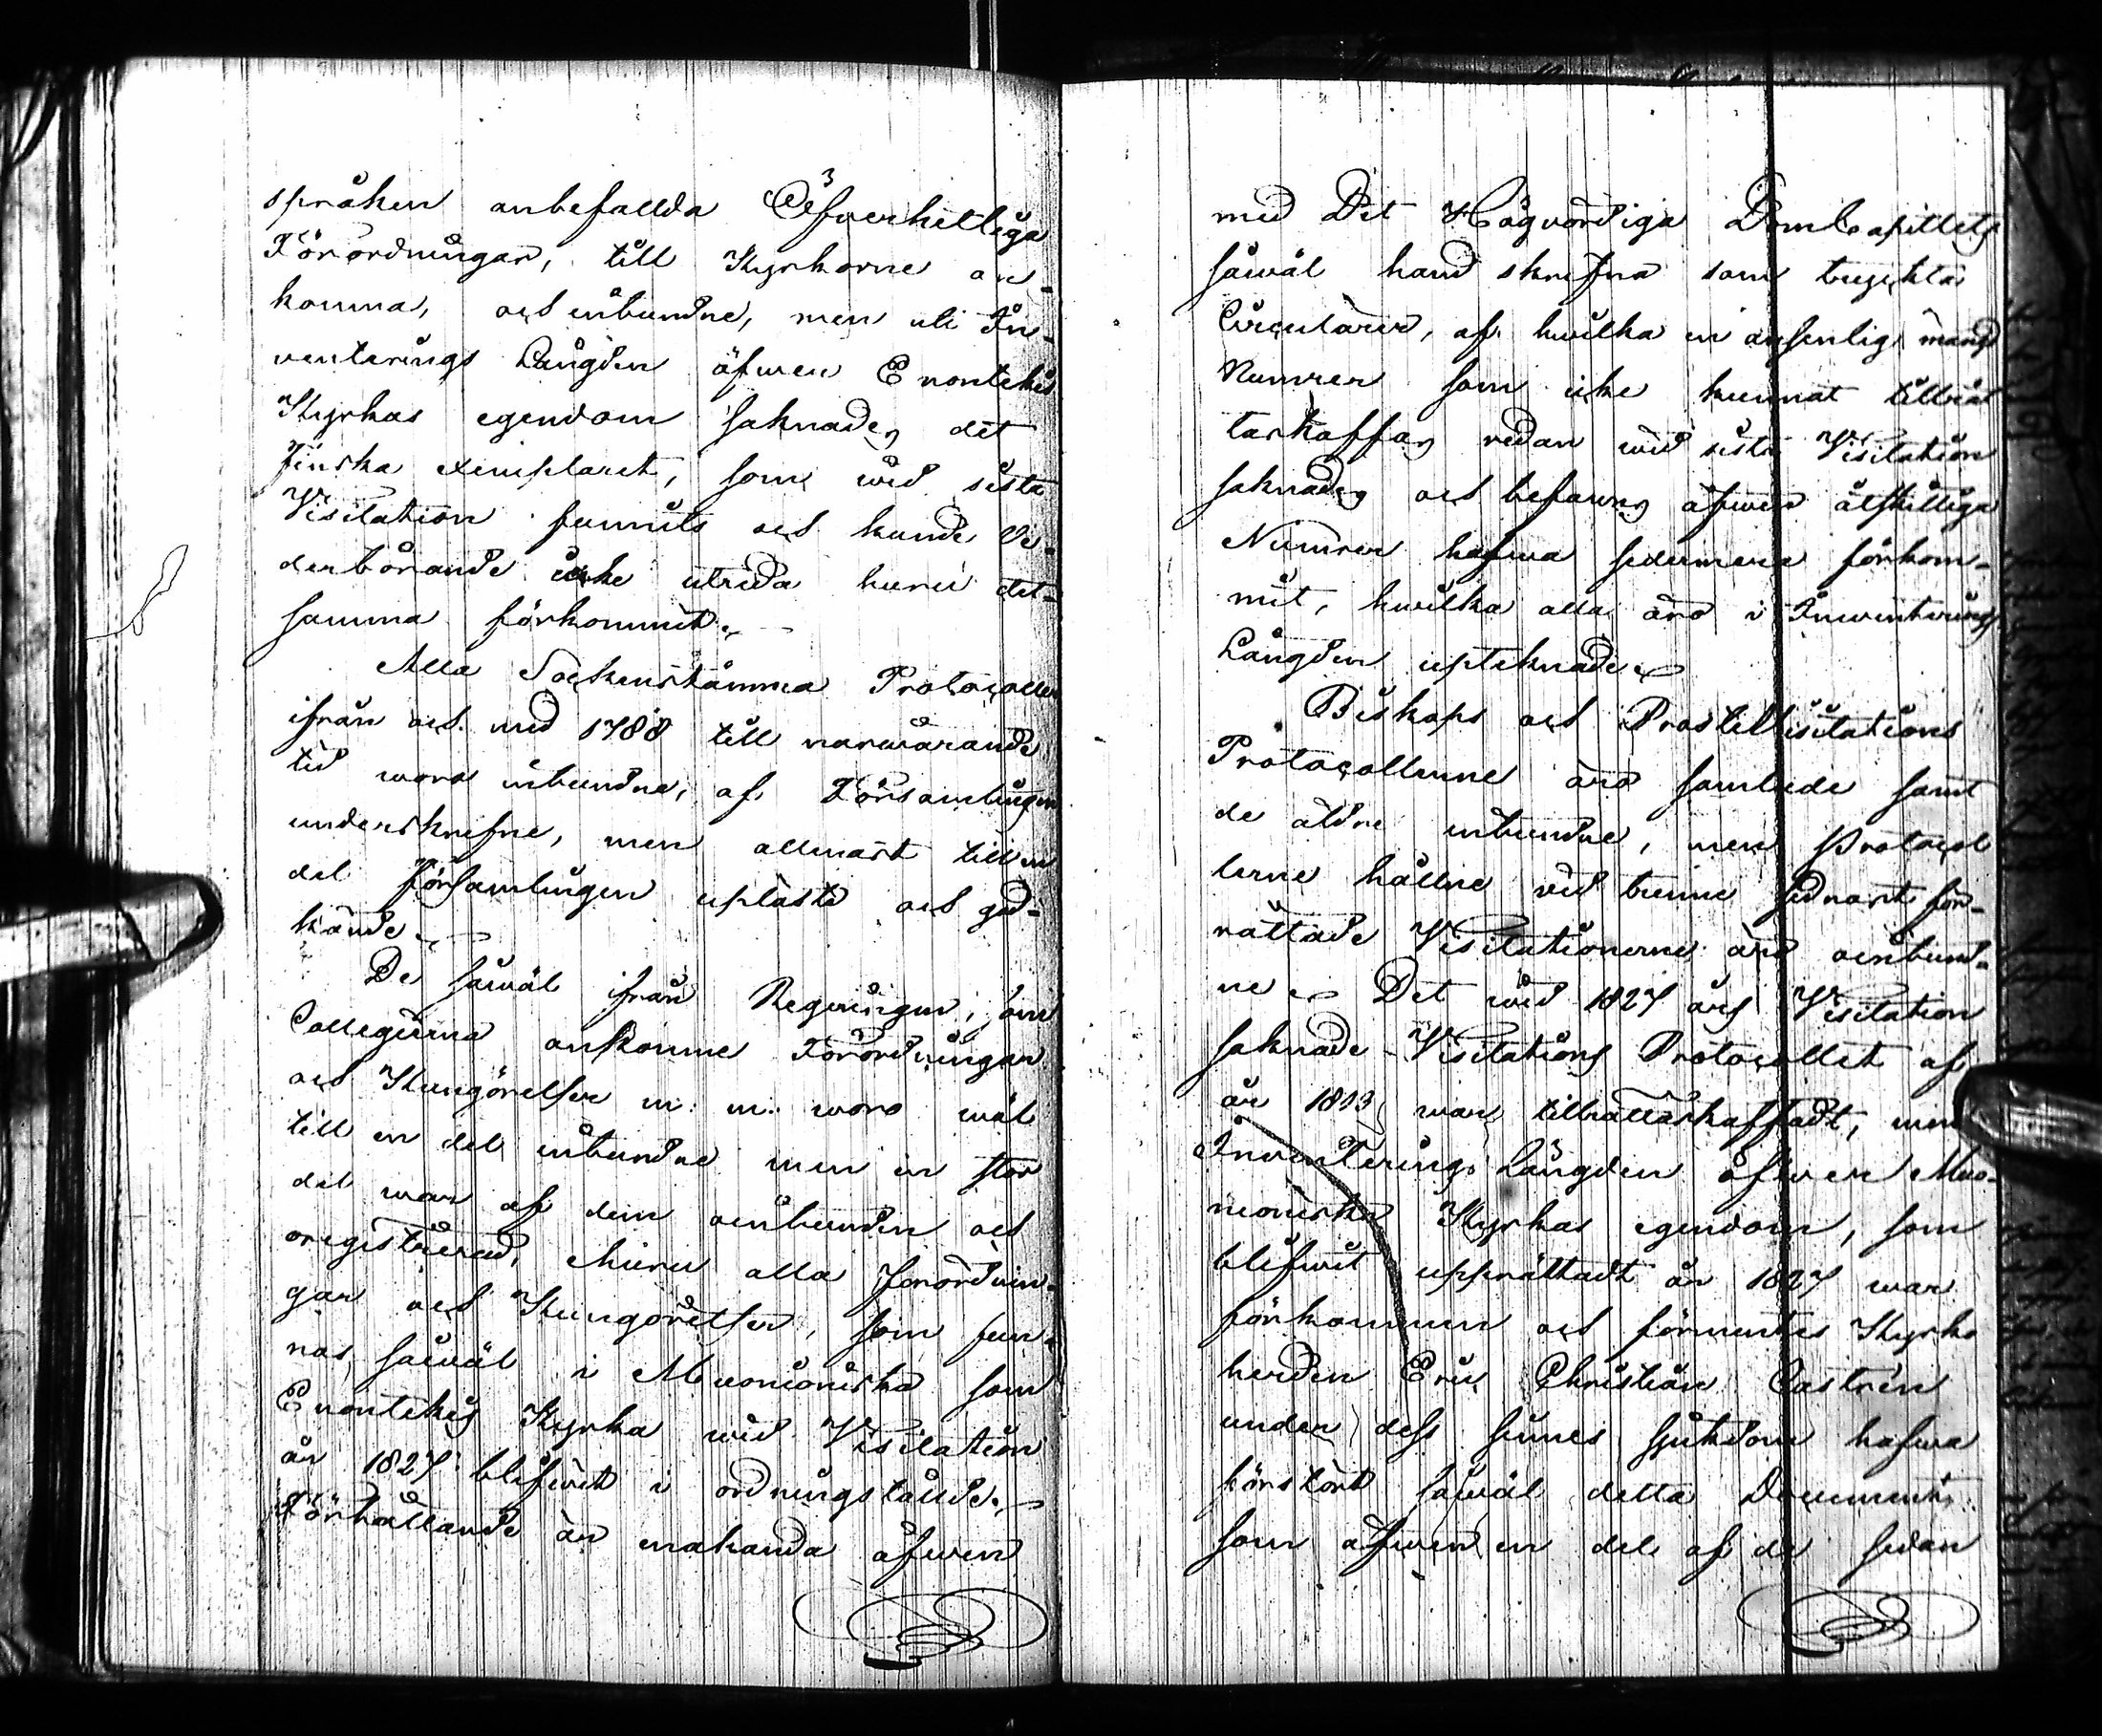 språken anbefallda Öfwerhetliga
Förordningar, till Kyrkorne an-
komma, och inbundne, men uti In-
venterings Längden öfwer Enontekis
Kyrkas egendom saknades det
finska exemplaret, som wid sista
Visitation funnits och kunde Ve-
derbörande icke utreda huru det-
samma förkommit.
Alla Sockenstämma Protocoller
ifrån och med 1788 till narwarande
tid woro inbundne, af Församlingen
underskrefne, men allenast till en
del församlingen upläste och god-
kände.
De såwäl ifrån Regeringen, som
Collegierna ankomne Förordningar
och Kungörelser m. m. woro wäl
till en del inbundne men en stor
del war af dem oinbunden och
oregistrerad, ehuru alla förordnin-
gar och Kungörelser, som fun-
nas såwäl i Muonioniska som
Enontekis Kyrka wid Visitation
år 1827 blifwit i ordningstälde.
Förhållande är enahanda äfwen
med Det Högvördiga DomCapitlets
såwäl handskrefna som tryckta
Circulairer, af hwilka en ansenlig mängd
Numrer som icke kunnat tillrät-
taskaffas redan wid sista Visitation
saknades och befanns äfwen åtskilliga
Numrer hafwa sedermera förkom-
mit, hwilka alla äro i Inwenterings
Längden uptecknade.
Biskops och Prost Visitations
Protocollerne äro samlade samt
de äldre inbundne, men Protocol
lerne hållne wid tvenne sednast för-
rättade Visitationerne äro oinbund-
ne. Det wid 1827 års Visitation
saknade Visitations Protocollet af
år 1813 war tillrättaskaffadt, men
Inwenterings Längden öfwer Muo-
nioniska Kyrkas egendom, som
blifwit upprättadt år 1827 war
förkommen och förmentes Kyrko
herden Eric Christian Castrén
under dess sinnes sjukdom hafwa
förstört såwäl detta Document
som äfwen en del af de sedan